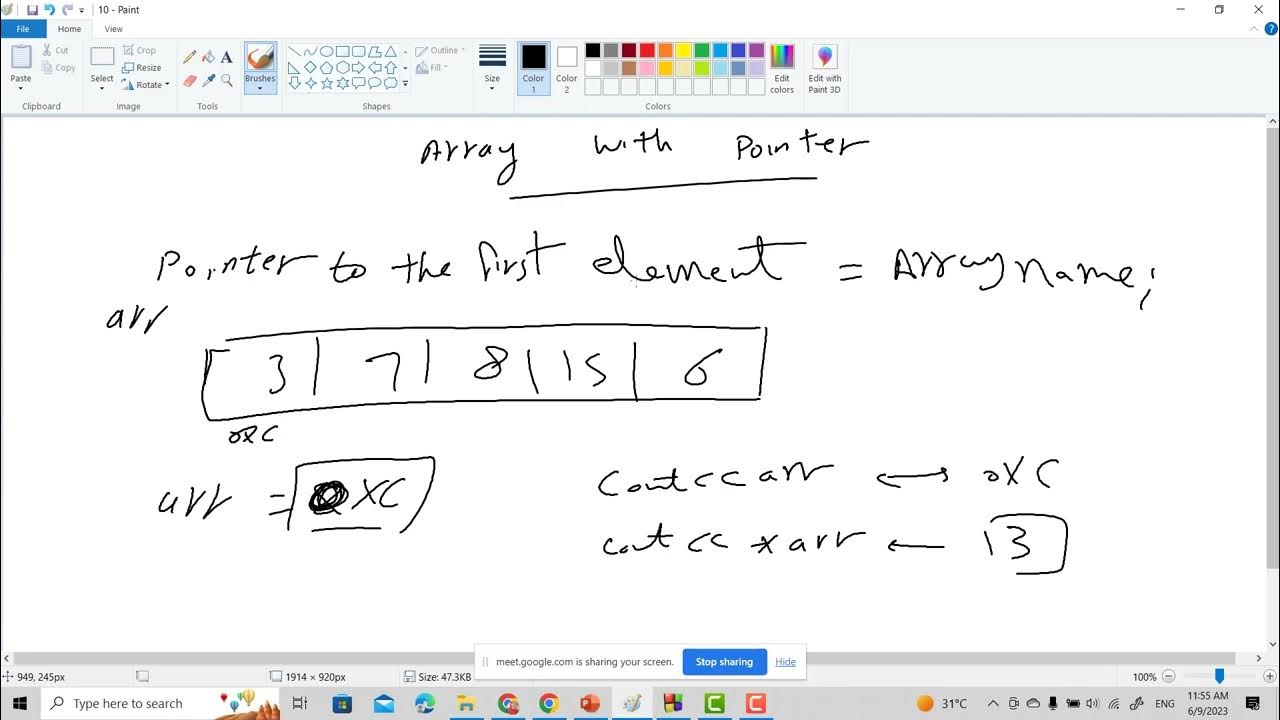 10 - Paint
File Home View
Paste Cut Copy Clipboard
Select Crop Resize Rotate Image
Tools
Brushes
Outline Fill Shapes
Size
Color 1 Color 2 Edit colors Colors
Edit with Paint 3D
Array with Pointer
Pointer to the first element = Array name;
arr
3 | 7 | 8 | 15 | 6
0XC
arr = 0XC
cout<<arr ⟷ 0XC
cout<< *arr ← 13
meet.google.com is sharing your screen. Stop sharing Hide
949, 245px 1914 × 920px Size: 47.3KB 100%
Type here to search 31°C ENG 11:55 AM 6/9/2023